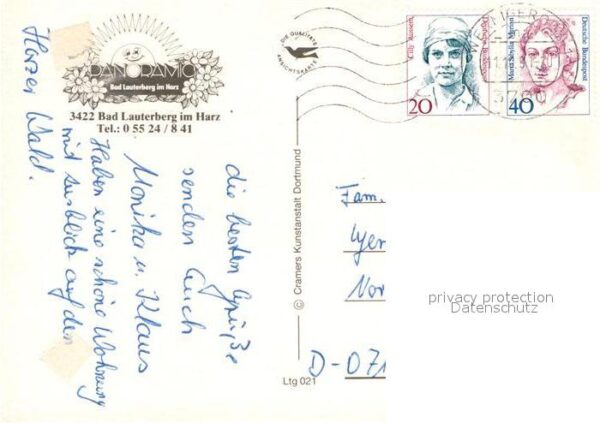 PANORAMIC
Bad Lauterberg im Harz
3422 Bad Lauterberg im Harz
Tel.: 0 55 24 / 8 41
die besten Grüße
senden Euch
Monika u. Klaus
Haben eine schöne Wohnung
mit Ausblick auf den
Harzer Wald.
DIE QUALITÄTS
ANSICHTSKARTE
© Cramers Kunstanstalt Dortmund
Ltg 021
Deutsche Bundespost
20
Deutsche Bundespost
Maria Sibylla Merian
40
3700
Fam.
Wer
Nor
D-071
privacy protection
Datenschutz